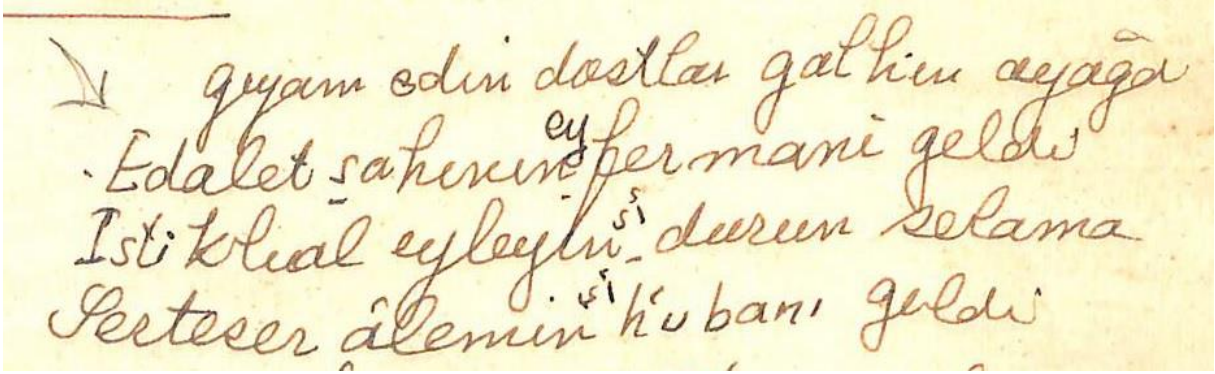 gıyam edin dostlar galhın ayağa
Edalet şahının ey fermani geldi
İstikbal eyleyin şi durun selama
Serteser âlemin şi hûbanı geldi